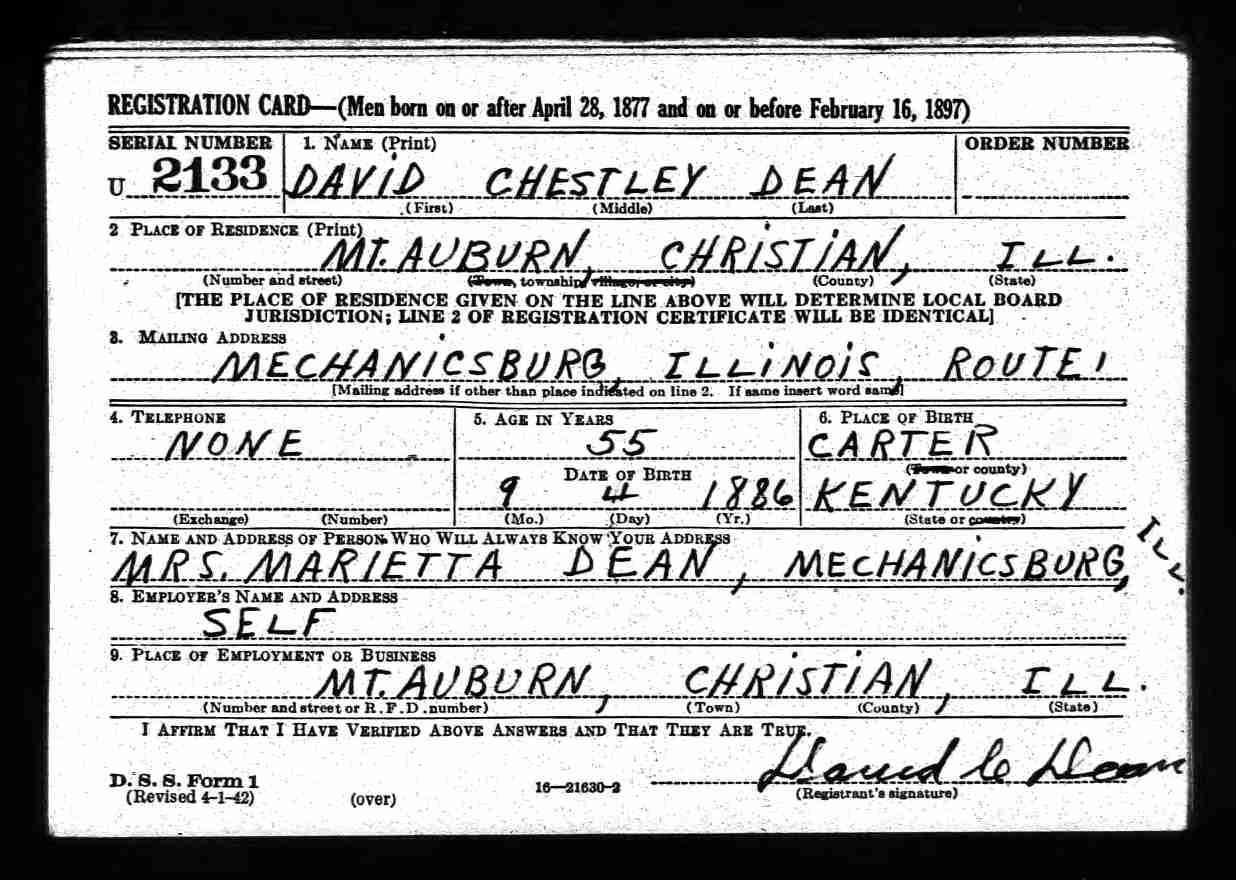 REGISTRATION CARD—(Men born on or after April 28, 1877 and on or before February 16, 1897)
SERIAL NUMBER 1. NAME (Print) ORDER NUMBER
U 2133 DAVID CHESTLEY DEAN
(First) (Middle) (Last)
2 PLACE OF RESIDENCE (Print)
MT. AUBURN, CHRISTIAN, ILL.
(Number and street) (Town, township, village, or city) (County) (State)
[THE PLACE OF RESIDENCE GIVEN ON THE LINE ABOVE WILL DETERMINE LOCAL BOARD
JURISDICTION; LINE 2 OF REGISTRATION CERTIFICATE WILL BE IDENTICAL]
3. MAILING ADDRESS
MECHANICSBURG, ILLINOIS, ROUTE 1
[Mailing address if other than place indicated on line 2. If same insert word same]
4. TELEPHONE 5. AGE IN YEARS 6. PLACE OF BIRTH
NONE 55 CARTER
DATE OF BIRTH (Town or county)
9 4 1886 KENTUCKY
(Exchange) (Number) (Mo.) (Day) (Yr.) (State or country)
7. NAME AND ADDRESS OF PERSON WHO WILL ALWAYS KNOW YOUR ADDRESS
MRS. MARIETTA DEAN, MECHANICSBURG, ILL.
8. EMPLOYER'S NAME AND ADDRESS
SELF
9. PLACE OF EMPLOYMENT OR BUSINESS
MT. AUBURN, CHRISTIAN, ILL.
(Number and street or R.F.D. number) (Town) (County) (State)
I AFFIRM THAT I HAVE VERIFIED ABOVE ANSWERS AND THAT THEY ARE TRUE.
David C Dean
D. S. S. Form 1
(Revised 4-1-42) (over) 16—21630-2 (Registrant's signature)